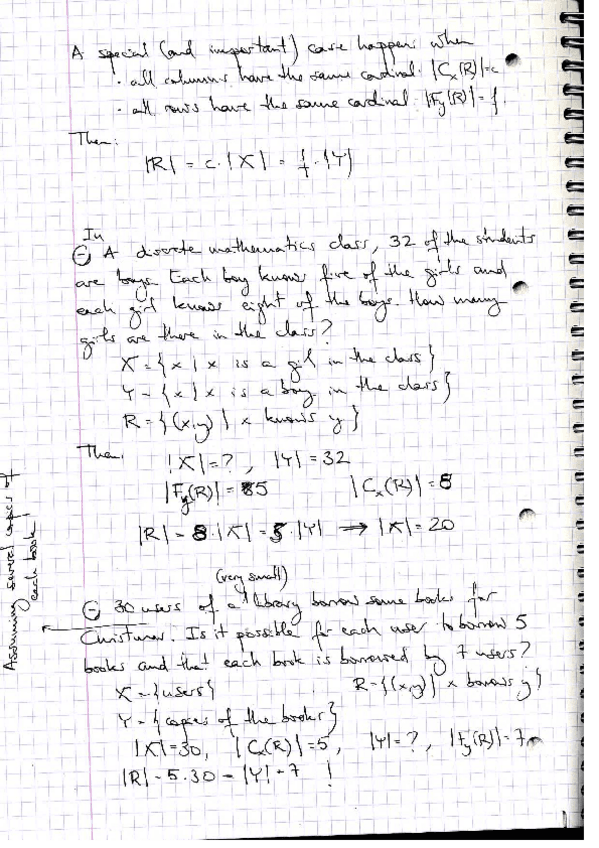 A special (and important) case happens when
· all columns have the same cardinal |Cx(R)|=c
· all rows have the same cardinal |Fy(R)|=f.
Then:
|R| = c·|X| = f·|Y|
In
⊖ A discrete mathematics class, 32 of the students
are boys. Each boy knows five of the girls and
each girl knows eight of the boys. How many
girls are there in the class?
X = {x | x is a girl in the class}
Y = {x | x is a boy in the class}
R = {(x,y) | x knows y}
Then,
|X| = ? , |Y| = 32
|Fy(R)| = 5 |Cx(R)| = 8
|R| = 8·|X| = 5·|Y| ⟹ |X| = 20
(very small)
⊖ 30 users of a library borrow some books for
Christmas. Is it possible for each user to borrow 5
books and that each book is borrowed by 7 users?
Assuming several copies of
each book
X = {users} R = {(x,y) | x borrows y}
Y = {copies of the books}
|X|=30, |Cx(R)|=5, |Y|=?, |Fy(R)|=7
|R| = 5·30 = |Y|·7 !